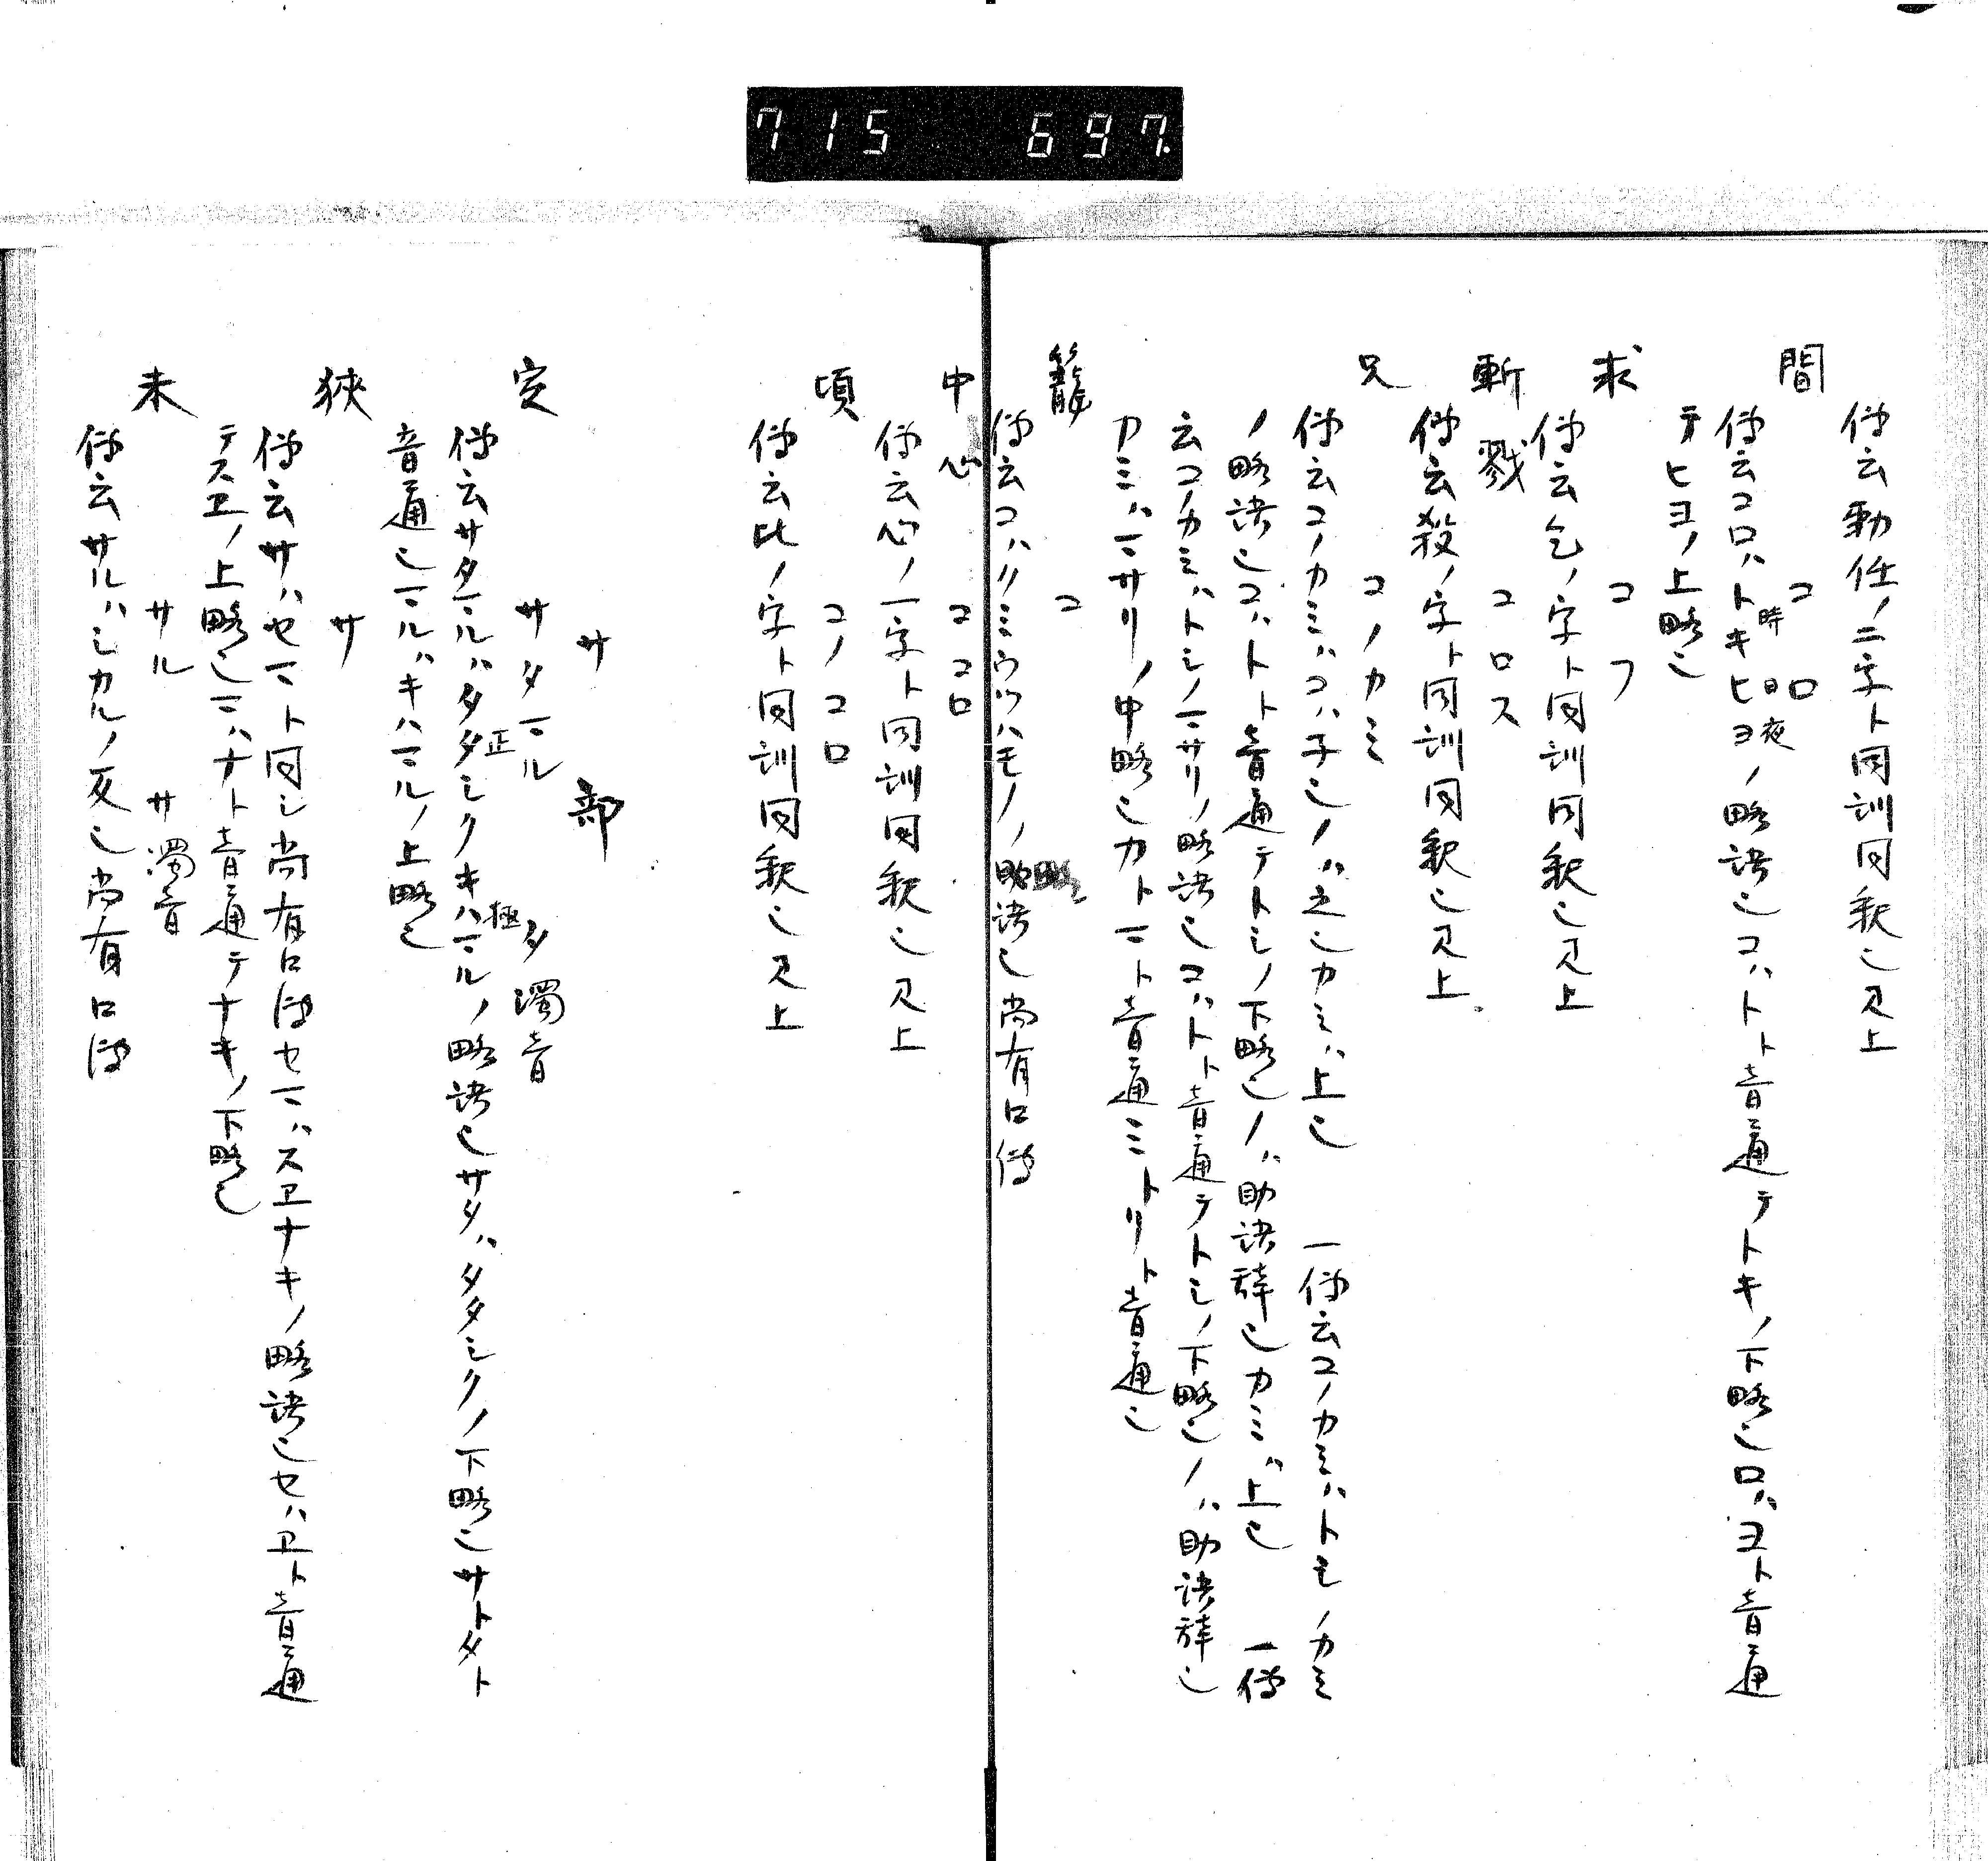 715 697.
傳云勤任ノ二字ト同訓同釈也見上
間 コロ
傳云コロハトキヒヨノ略語也コハトト音通テトキノ下略也ロハヨト音通
時 日 夜
テヒヨノ上略也
求 コフ
傳云乞ノ字ト同訓同釈也見上
斬 戮 コロス
傳云殺ノ字ト同訓同釈也見上
兄 コノカミ
傳云コノカミハコハ子也ノハ之也カミハ上也 一傳云コノカミハトシノカミ
ノ略語也コハトト音通テトシノ下略也ノハ助語辞也カミハ上也 一傳
云コノカミハトシノマサリノ略語也コハトト音通テトシノ下略也ノハ助語辞也
カミハマサリノ中略也カトマト音通ミトリト音通也
籠 コ
傳云コハノミウツハモノノ略語也尚有口傳
中心 コココロ
傳云心ノ一字ト同訓同釈也見上
頃 コノコロ
傳云比ノ字ト同訓同釈也見上
サ 部
定 サタマル タ濁音
傳云サタマルハタタシクキハマルノ略語也サタハタタシクノ下略也サトタト
正 極
音通也マルハキハマルノ上略也
狭 サ
傳云サハセマト同シ尚有口傳セマハスヱナキノ略語也セハヱト音通
テスヱノ上略也マハナト音通テナキノ下略也
未 サル サ濁音
傳云サルハシカルノ反也尚有口傳